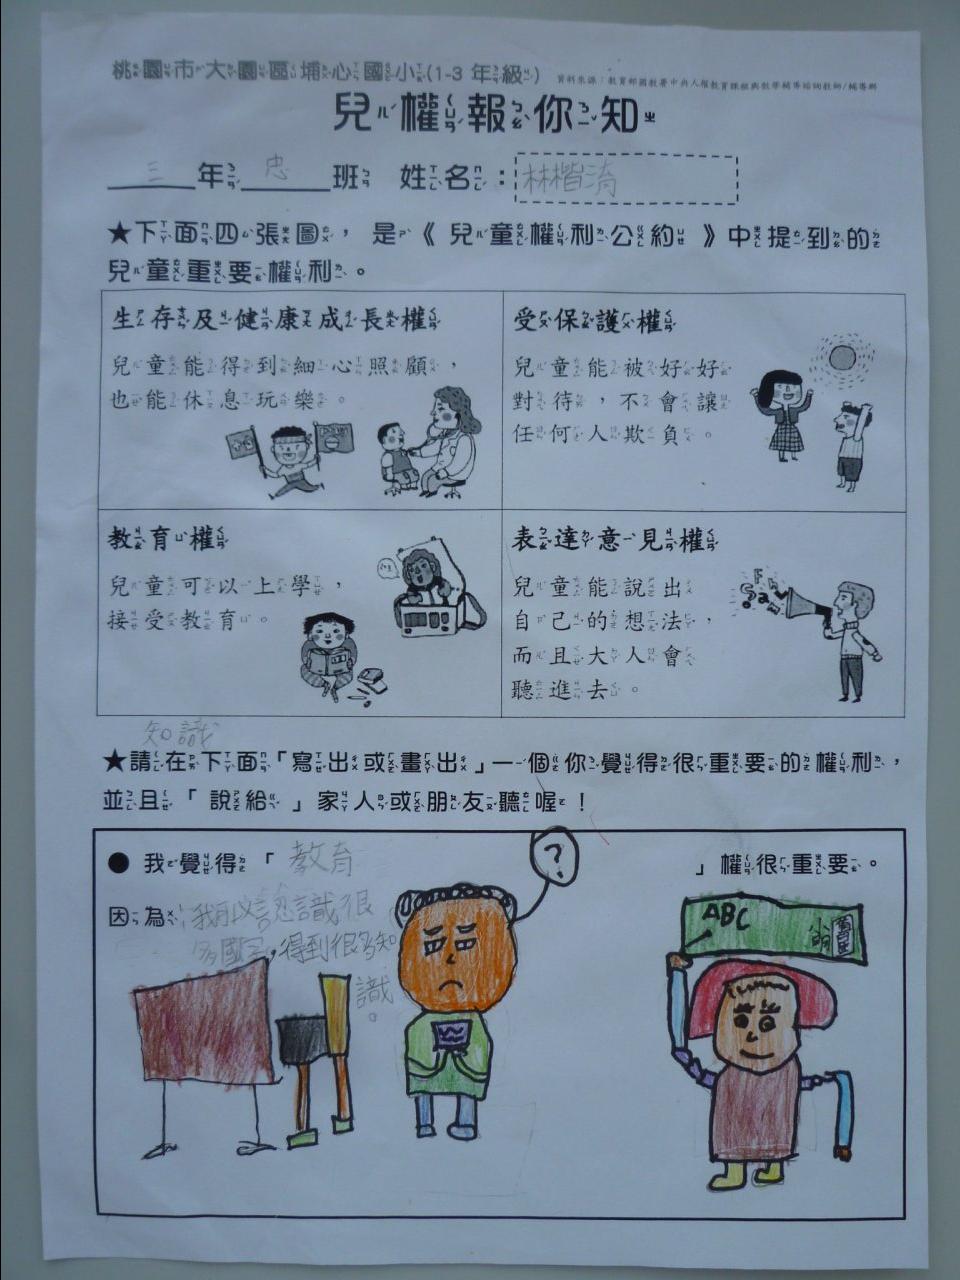 桃園市大園區埔心國小(1-3年級)
資料來源：教育部國教署中央人權教育課程與教學輔導諮詢教師/輔導群
兒權報你知
三年忠班 姓名：林楷淯
★下面四張圖，是《兒童權利公約》中提到的
兒童重要權利。
生存及健康成長權
兒童能得到細心照顧，
也能休息玩樂。
受保護權
兒童能被好好
對待，不會讓
任何人欺負。
教育權
兒童可以上學，
接受教育。
表達意見權
兒童能說出
自己的想法，
而且大人會
聽進去。
知識
★請在下面「寫出或畫出」一個你覺得很重要的權利，
並且「說給」家人或朋友聽喔！
●我覺得「教育」權很重要。
因為：我可以認識很
多國字，得到很多知
識。
?
ABC